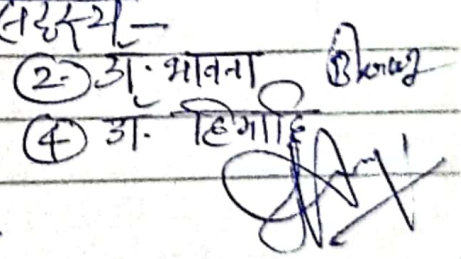 सदस्य -
② डॉ. भावना
④ डॉ. हिमाद्रि